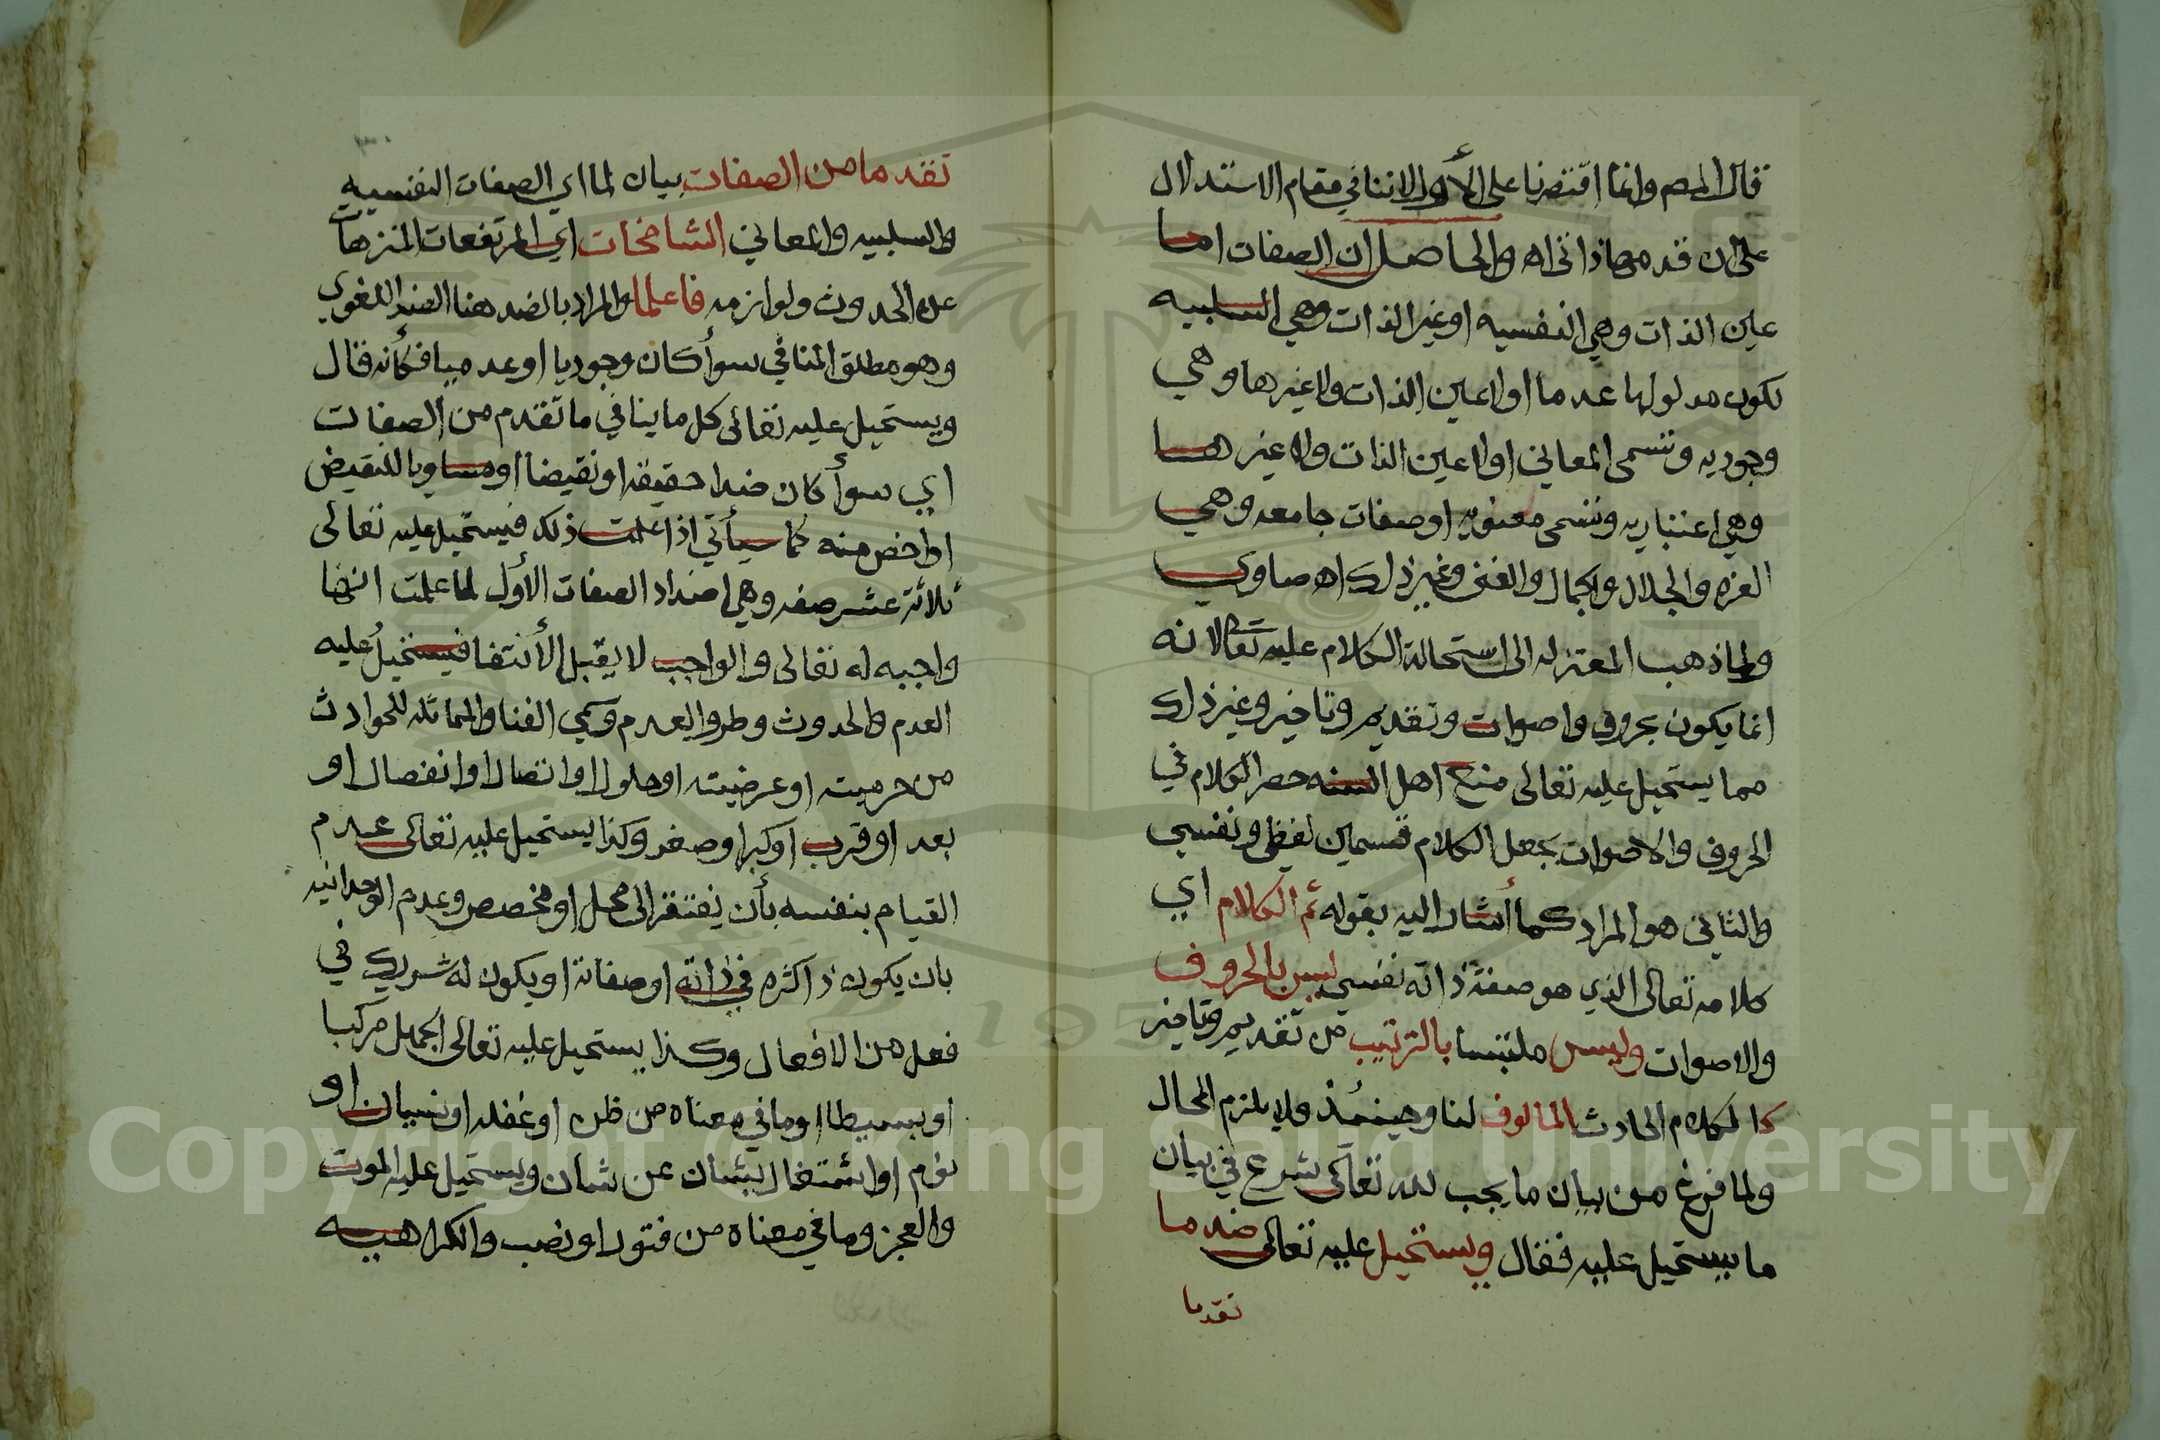 قال المصم وانما اقتصرنا على الأول لاننا في مقام الاستدلال
على ان قدمها ذاتي اه والحاصل ان الصفات اما
عين الذات وهي النفسيه او غير الذات وهي السلبيه
لكون مدلولها عدما او لا عين الذات ولا غيرها وهي
وجوديه وتسمى المعاني او لا عين الذات ولا غيرها
وهي اعتباريه وتسمى معنويه او صفات جامعه وهي
العزه والجلال والجمال والغنى وغير ذلك اه صاوي
ولما ذهب المعتزله الى استحالة الكلام عليه تعالى لانه
انما يكون بحروف واصوات وتقديم وتاخير وغير ذلك
مما يستحيل عليه تعالى منع اهل السنه حصر الكلام في
الحروف والاصوات بجعل الكلام قسمين لفظي ونفسي
والثاني هو المراد كما أشار اليه بقوله ثم الكلام اي
كلامه تعالى الذي هو صفة ذاته نفسي ليس بالحروف
والاصوات وليس ملتبسا بالترتيب من تقديم وتاخير
كالكلام الحادث المالوف لنا وحينئذ ولا يلزم المحال
ولما فرغ من بيان ما يجب لله تعالى شرع في بيان
ما يستحيل عليه فقال ويستحيل عليه تعالى ضد ما
تقدما
تقدما من الصفات بيان لما اي الصفات النفسيه
والسلبيه والمعاني الشامخات اي المرتفعات المنزهات
عن الحدوث ولوازمه فاعلما والمراد بالضد هنا الضد اللغوي
وهو مطلق المنافي سوأ كان وجوديا او عدميا فكأنه قال
ويستحيل عليه تعالى كل ما ينافي ما تقدم من الصفات
اي سوأ كان ضدا حقيقة او نقيضا او مساويا للنقيض
او اخص منه كما سيأتي اذا علمت ذلك فيستحيل عليه تعالى
ثلاثة عشر صفه وهي اضداد الصفات الأول لما علمت انها
واجبه له تعالى والواجب لا يقبل الأنتفا فيستحيل عليه
العدم والحدوث وطرو العدم وسمي الفنا والمماثله للحوادث
من جرميته او عرضيته او حلول او اتصال او انفصال او
بعد او قرب او كبر او صغر وكذا يستحيل عليه تعالى عدم
القيام بنفسه بأن يفتقر الى محل او مخصص وعدم الوحدانيه
بان يكون ذا كثره في ذاته او صفاته او يكون له شريك في
فعل من الافعال وكذا يستحيل عليه تعالى الجهل مركبا
او بسيطا وما في معناه من ظن او غفله او نسيان او
نوم او اشتغال بشان عن شان ويستحيل عليه الموت
والعجز وما في معناه من فتور او نصب والكراهيه
Copyright © King Saud University